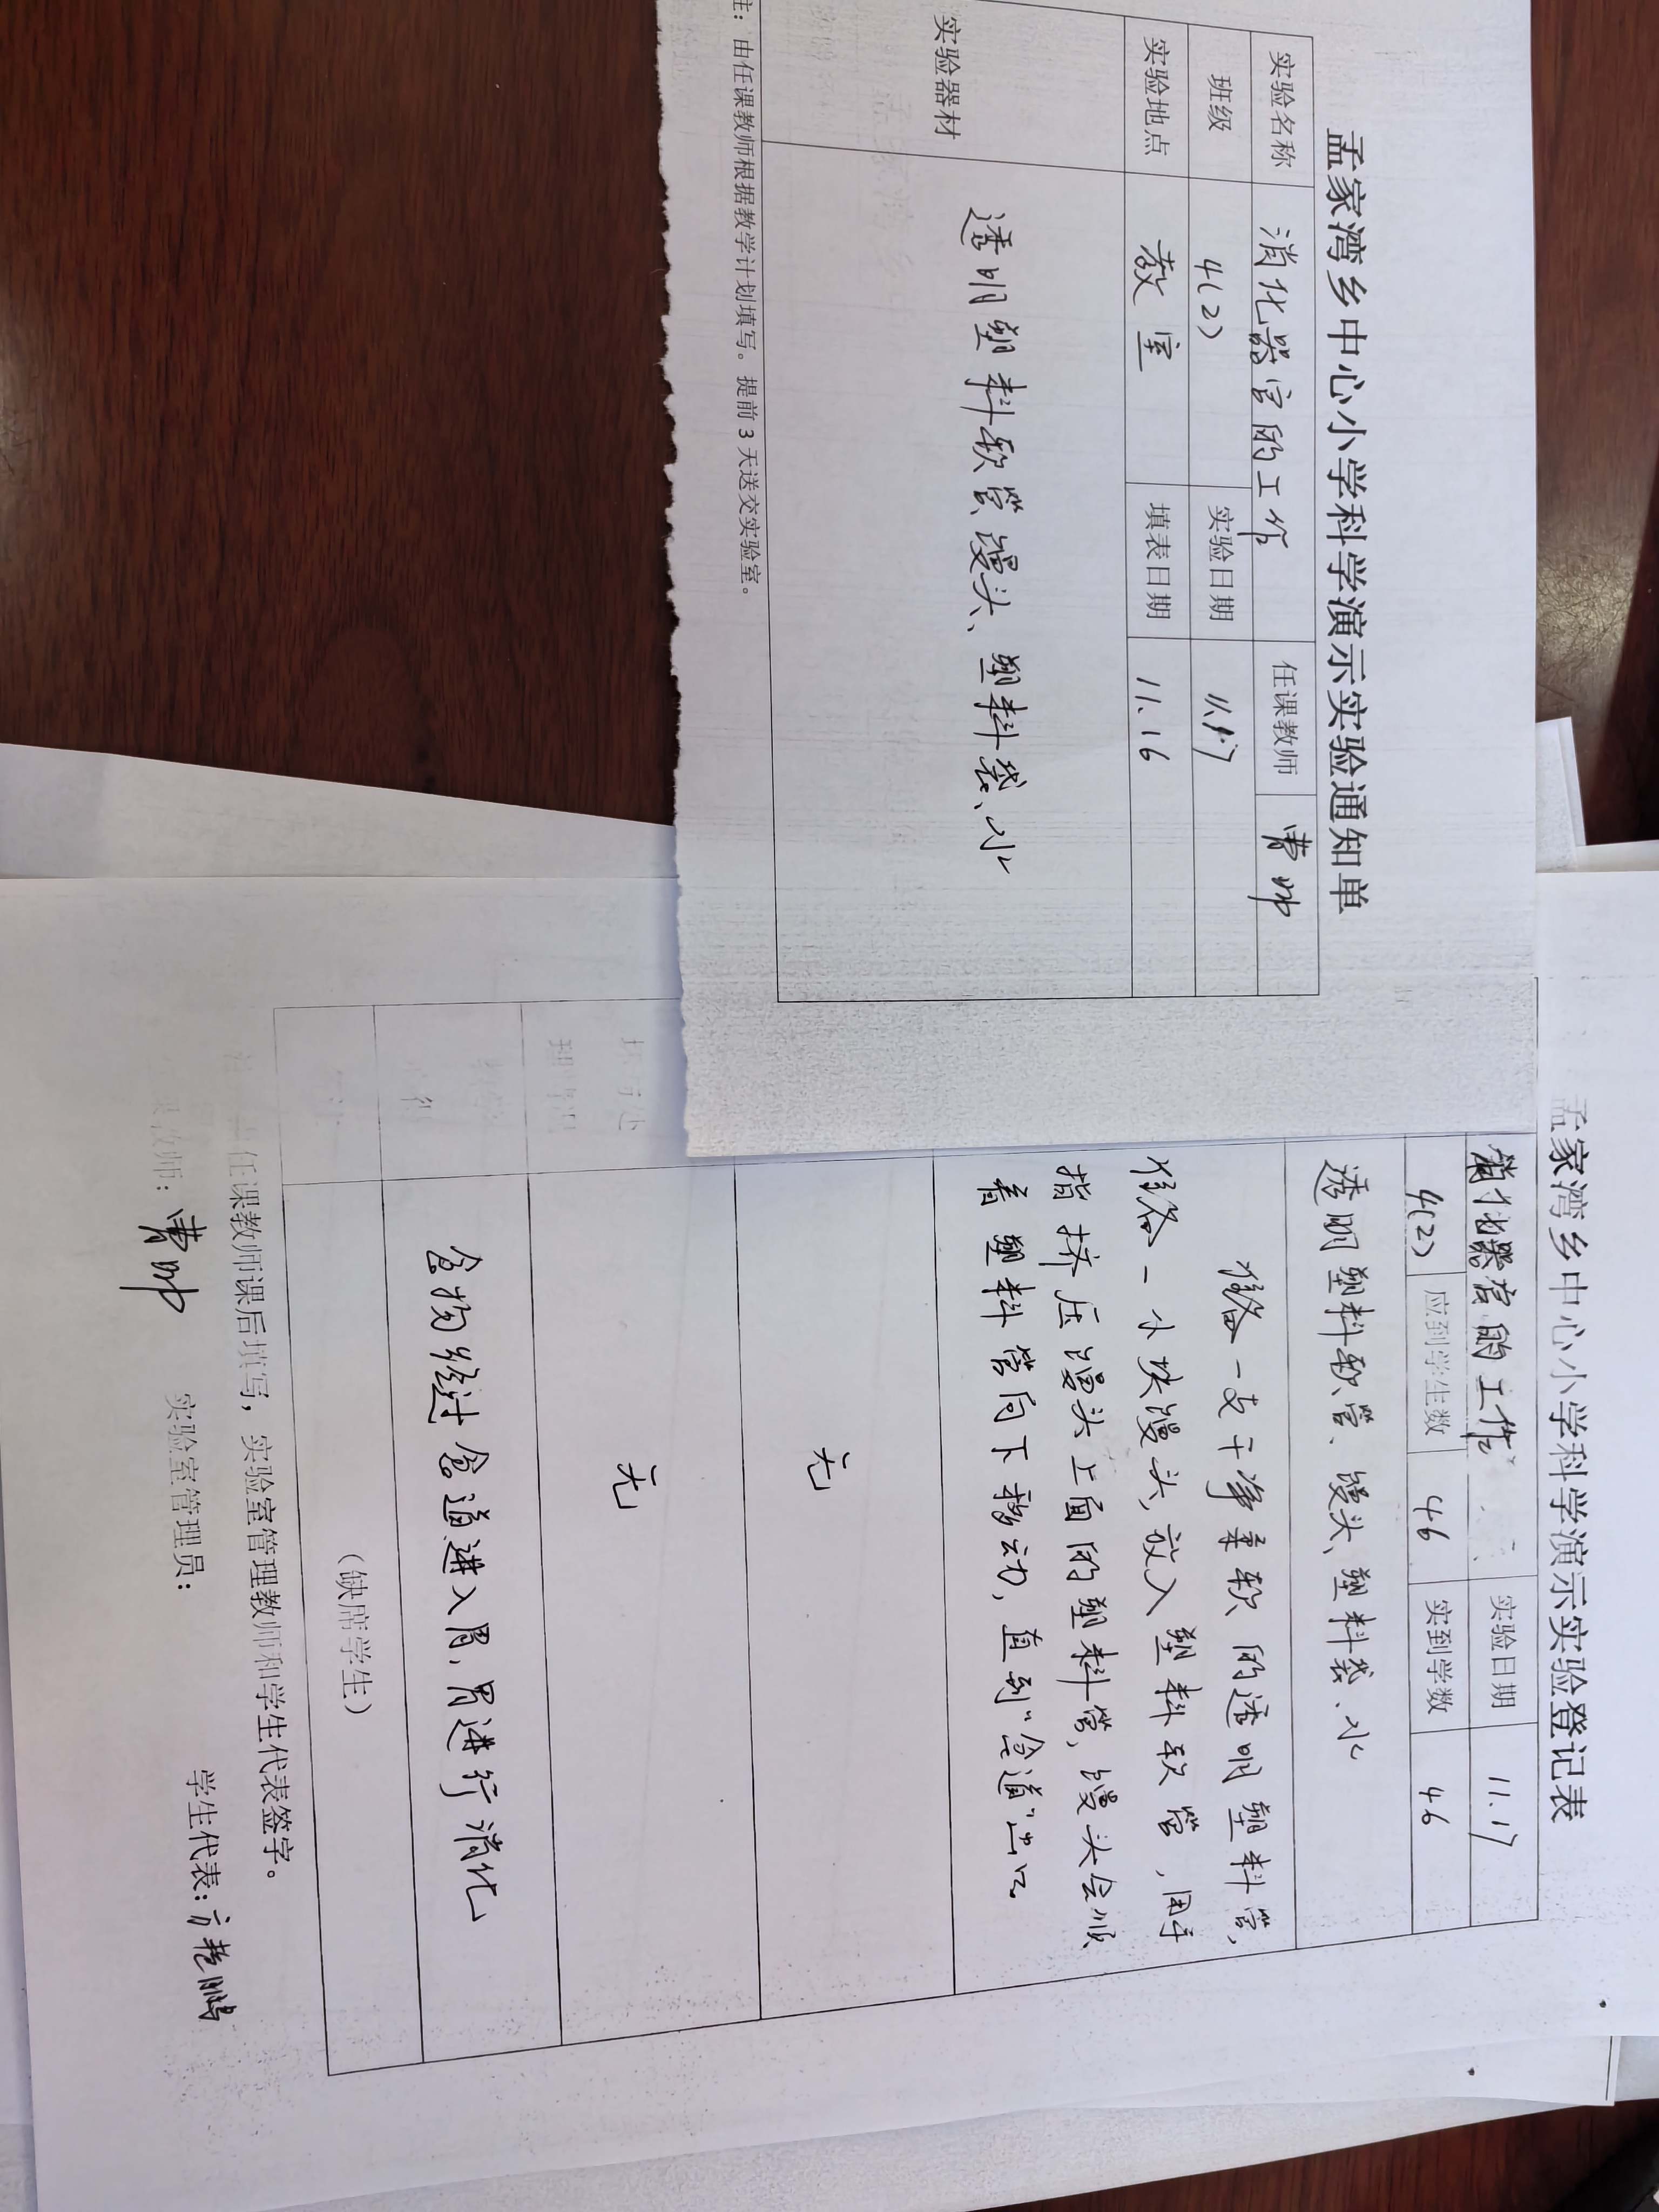 孟家湾乡中心小学科学演示实验通知单
实验名称 消化器官的工作 任课教师 曹帅
班级 4(2) 实验日期 11.17
实验地点 教室 填表日期 11.16
实验器材 透明塑料软管、馒头、塑料袋、水
注：由任课教师根据教学计划填写。提前3天送交实验室。
孟家湾乡中心小学科学演示实验登记表
消化器官的工作 实验日期 11.17
4(2) 应到学生数 46 实到学数 46
透明塑料软管、馒头、塑料袋、水
准备一支干净柔软的透明塑料管,
准备一小块馒头,放入塑料软管,用手
指挤压馒头上面的塑料管,馒头会顺
着塑料管向下移动,直到"食道"出口
无
无
食物经过食道进入胃,胃进行消化
（缺席学生）
任课教师课后填写，实验室管理教师和学生代表签字。
教师：曹帅 实验室管理员： 学生代表：